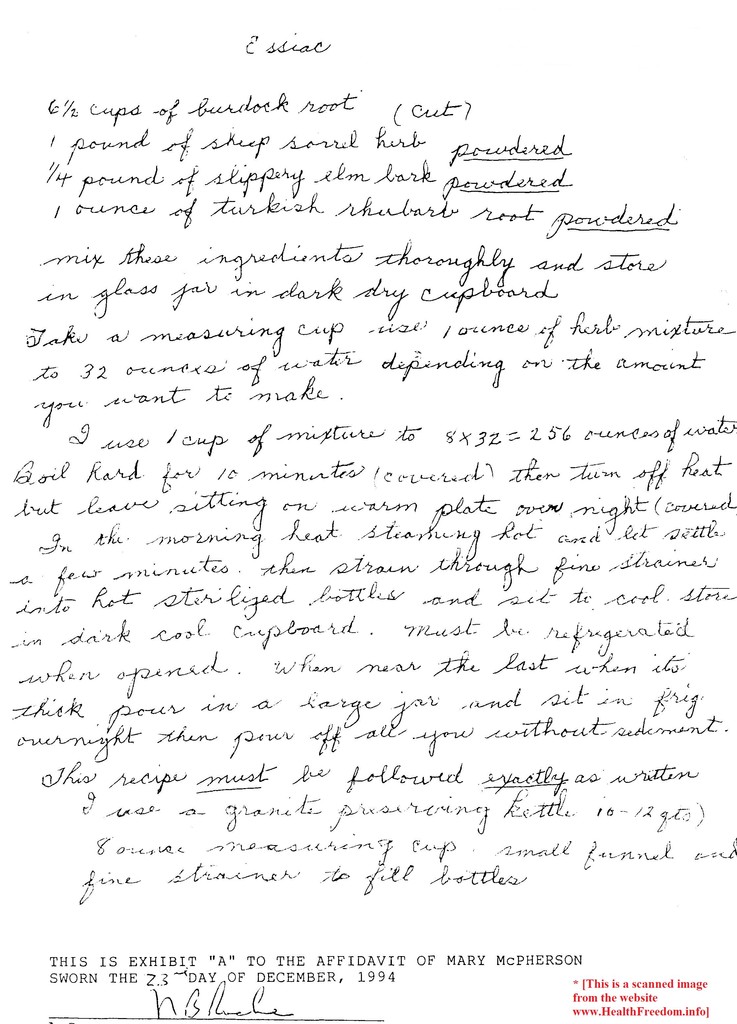 Essiac
6½ cups of burdock root (cut)
1 pound of sheep sorrel herb powdered
¼ pound of slippery elm bark powdered
1 ounce of turkish rhubarb root powdered
mix these ingredients thoroughly and store
in glass jar in dark dry cupboard
Take a measuring cup use 1 ounce of herb mixture
to 32 ounces of water depending on the amount
you want to make.
I use 1 cup of mixture to 8x32=256 ounces of water
Boil hard for 10 minutes (covered) then turn off heat
but leave sitting on warm plate over night (covered
In the morning heat steaming hot and let settle
a few minutes. then strain through fine strainer
into hot sterilized bottles and sit to cool. store
in dark cool cupboard. Must be refrigerated
when opened. When near the last when its
thick pour in a large jar and sit in frig
overnight then pour off all you without sediment.
This recipe must be followed exactly as written
I use a granite preserving kettle 10-12 qts)
8 ounce measuring cup. small funnel and
fine strainer to fill bottles
THIS IS EXHIBIT "A" TO THE AFFIDAVIT OF MARY McPHERSON
SWORN THE 23rd DAY OF DECEMBER, 1994
* [This is a scanned image
from the website
www.HealthFreedom.info]